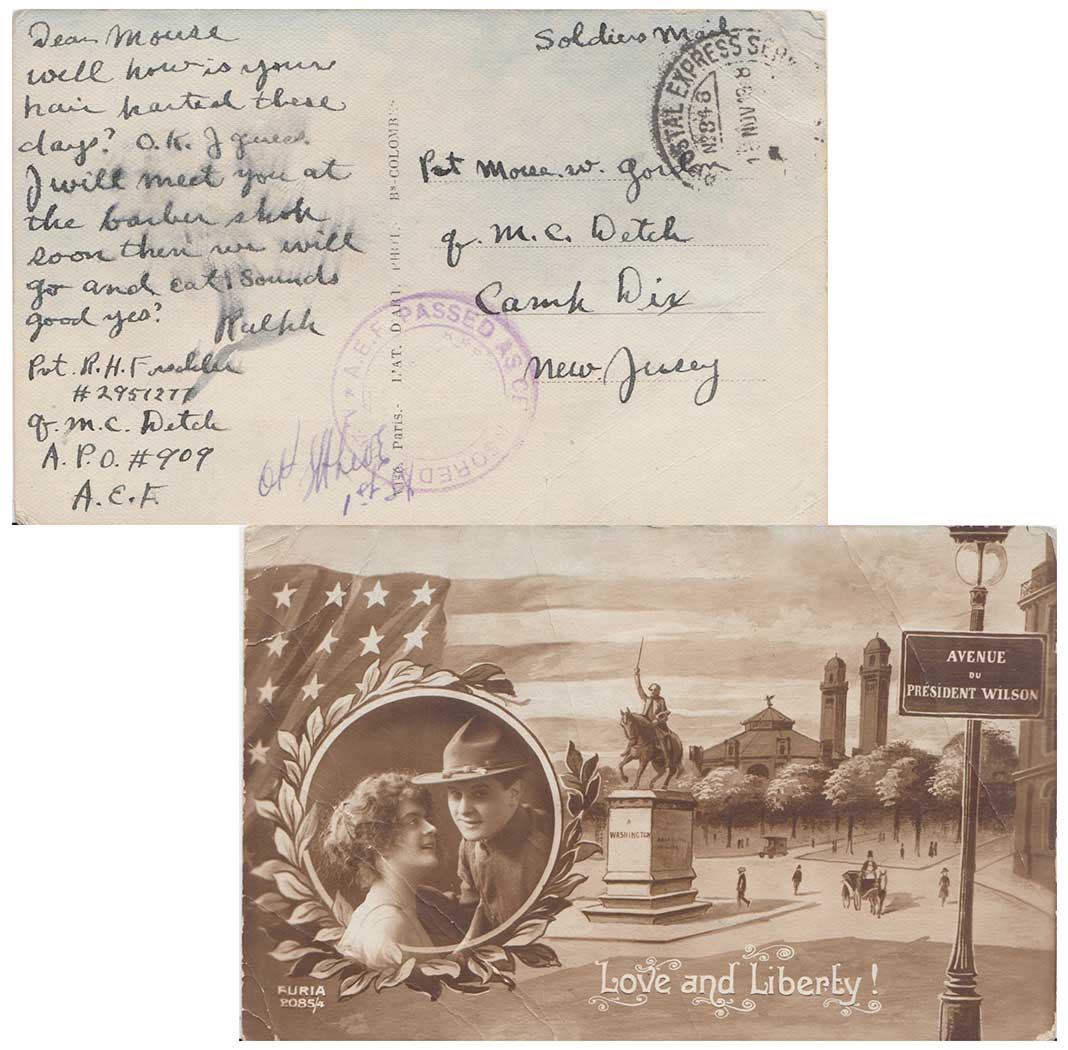 Dear Mouse
well how is your
hair parted these
days? O.K. I guess.
I will meet you at
the barber shop
soon then we will
go and eat! Sounds
good yes?
Ralph
Pvt. R. H.
#2951277
Q. M. C. Detch
A. P. O. #909
A. E. F.
Soldiers Mail
POSTAL EXPRESS SERV
No 848
NOV
Pvt Mouse. W.
Q. M. C. Detch
Camp Dix
New. Jersey
Paris. - L'AT. D'ART PHOT. - Bs-COLOMB
A.E.F. PASSED AS CENSORED
OK
1st Lt
AVENUE
DU
PRÉSIDENT WILSON
A
WASHINGTON
Love and Liberty!
FURIA
2085/4